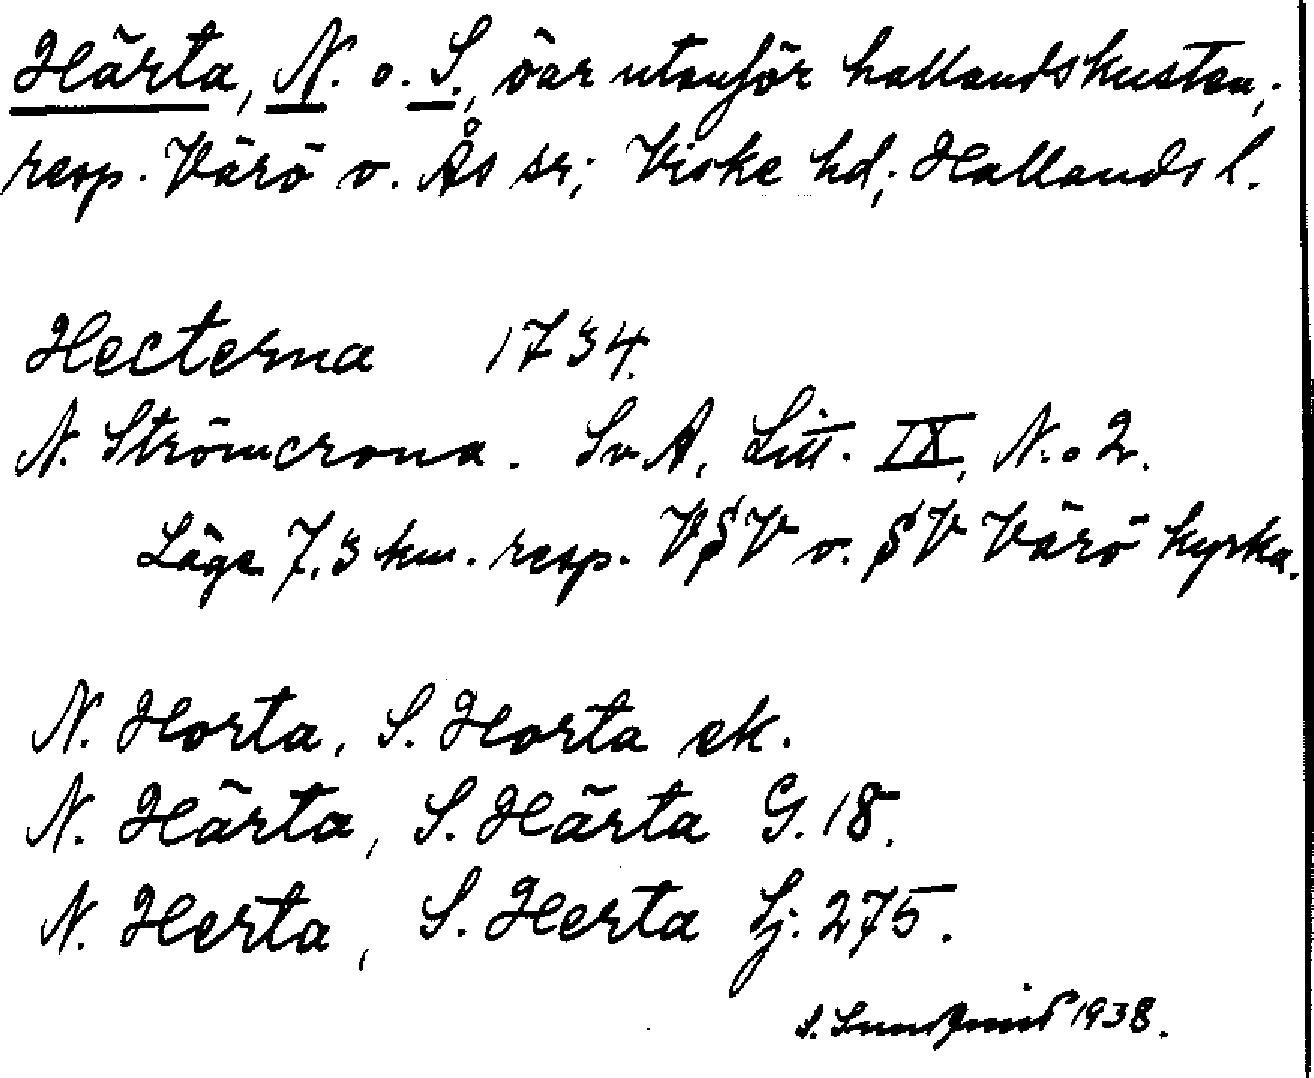 Härta, N. o. S., öar utanför hallandskusten;
resp. Värö o. Ås sr; Viske hd; Hallands l.
Hecterna 1734.
N. Strömcrona. Sv. A, Litt. IX, N.o 2.
Läge 7,3 km. resp. VSV o. SV Värö kyrka.
N. Horta, S. Horta ek.
N. Härta, S. Härta G. 18.
N. Herta, S. Herta Sj. 275.
1938.